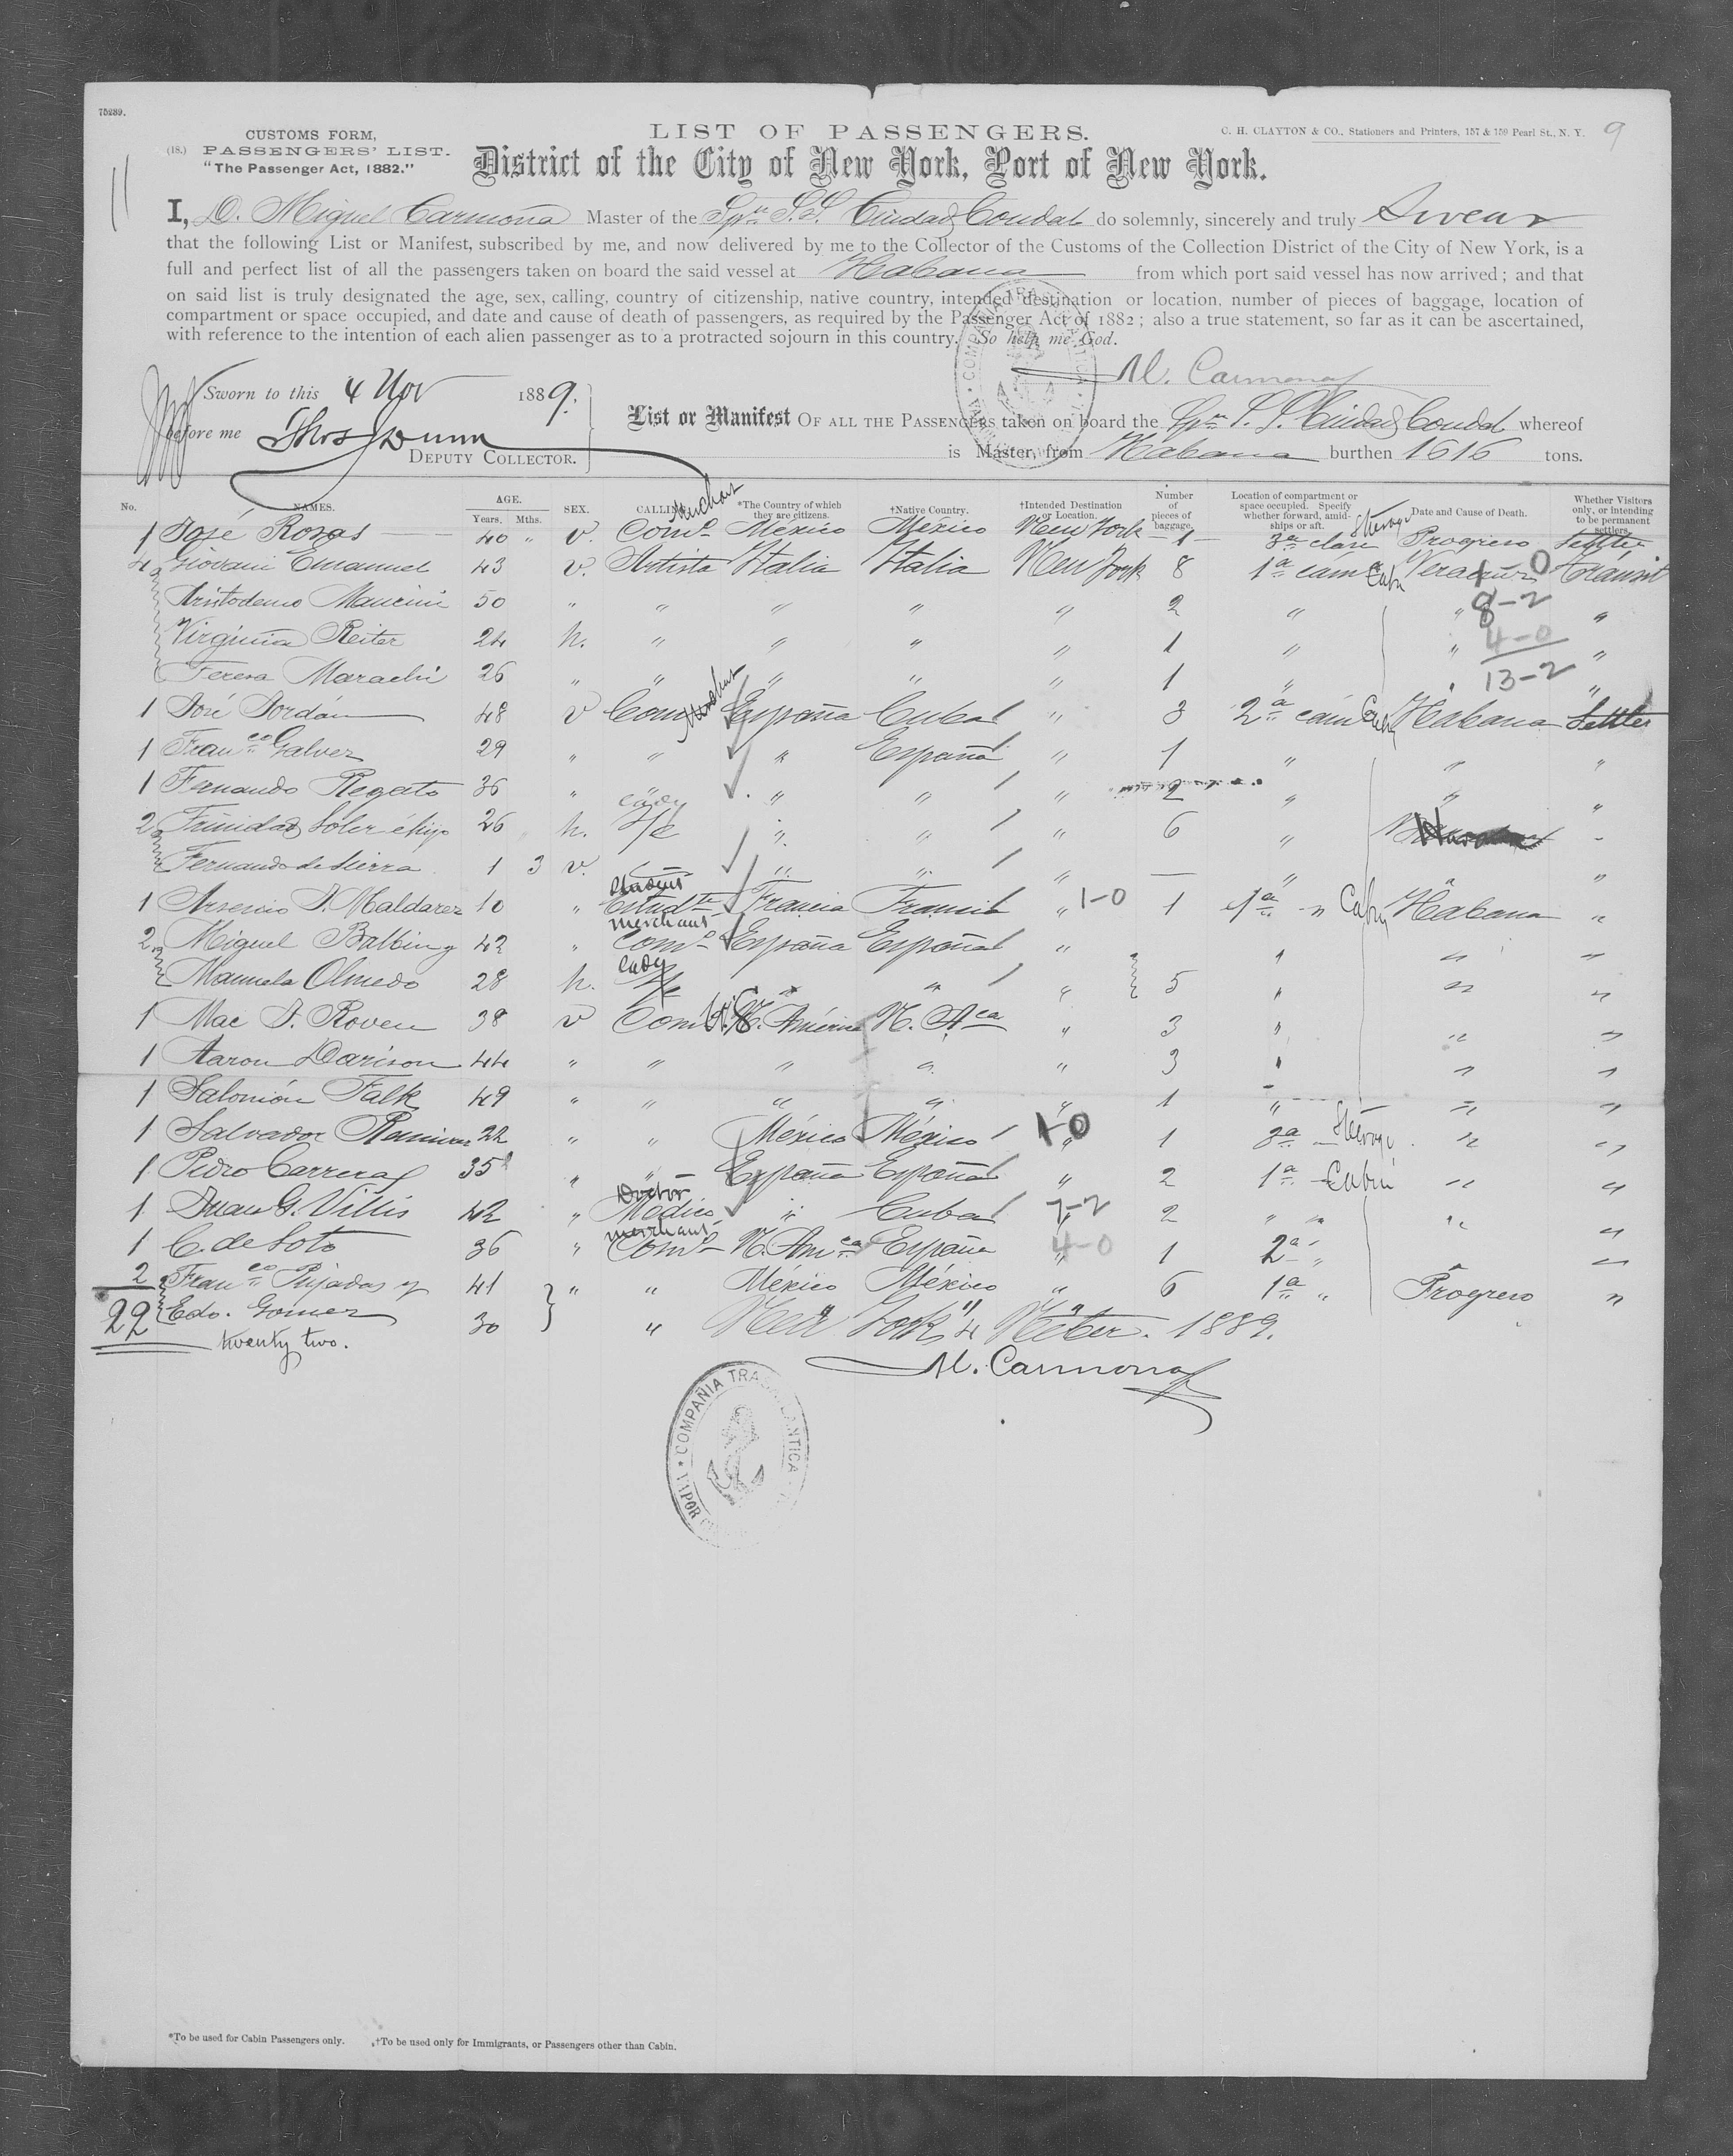 75289.
CUSTOMS FORM,
(18.) PASSENGERS' LIST.
"The Passenger Act, 1882."
LIST OF PASSENGERS.
C. H. CLAYTON & CO., Stationers and Printers, 157 & 159 Pearl St., N. Y. 9
District of the City of New York, Port of New York.
11
I, D. Miguel Carmona Master of the Spn S.S. Ciudad Condal do solemnly, sincerely and truly Swear
that the following List or Manifest, subscribed by me, and now delivered by me to the Collector of the Customs of the Collection District of the City of New York, is a
full and perfect list of all the passengers taken on board the said vessel at Habana from which port said vessel has now arrived; and that
on said list is truly designated the age, sex, calling, country of citizenship, native country, intended destination or location, number of pieces of baggage, location of
compartment or space occupied, and date and cause of death of passengers, as required by the Passenger Act of 1882; also a true statement, so far as it can be ascertained,
with reference to the intention of each alien passenger as to a protracted sojourn in this country. So help me God.
M. Carmona
Sworn to this 4 Nov 1889.
before me Thos Dunn
DEPUTY COLLECTOR.
List or Manifest OF ALL THE PASSENGERS taken on board the Spn S. S. Ciudad Condal whereof
is Master, from Habana burthen 1616 tons.
No. NAMES. AGE. Years. Mths. SEX. CALLING. *The Country of which they are citizens. †Native Country. †Intended Destination or Location. Number of pieces of baggage. Location of compartment or space occupied. Specify whether forward, amidships or aft. Date and Cause of Death. Whether Visitors only, or intending to be permanent settlers.
1 José Rosas 40 " v. Como Merchant México México New York 1 3a clase Steerage Progreso Settler
4 Giovani Emanuel 43 v. Artista Italia Italia New York 8 1a cama Cabin Veracruz Transit
Aristodemo Mancini 50 " " " " " 2 " " 8-2 "
Virginia Reiter 24 h. " " " " 1 " " 4-0 "
Teresa Marachi 26 " " " " " 1 " " 13-2 "
1 José Jordán 48 v Como Merchant España Cuba " 3 2a cam Cabin Habana Settler
1 Franco Galvez 29 " " " España " 1 " " "
1 Fernando Regato 36 " " " " " 2 " " "
2 Trinidad Soler é hijo 26 h. Lady S/c " " " 6 " "
Fernando de Sierra 1 3 v. " " " " "
1 Arsenio S. Maldarez 10 " Estudte Student Francia Francia " 1-0 1 1a " Cabin Habana "
2 Miguel Balbin y 42 " Como merchant España España " " " "
Manuela Olmedo 28 h. Lady S/c " " " 5 " " "
1 Mac S. Roven 38 v Como N. América N. Aca " 3 " " "
1 Aaron Davison 44 " " " " " 3 " " "
1 Salomón Falk 49 " " " " " 1 " " "
1 Salvador Ramirez 22 " " México México " 1-0 1 3a Steerage " "
1 Pedro Carreras 35 " " España España " 2 1a Cabin " "
1 Juan G. Villis 42 " Médico Doctor " Cuba " 7-2 2 " " " "
1 C. de Soto 36 " Como merchant N. Amca España " 4-0 1 2a " "
2 Franco Pujadas y 41 " " México México " 6 1a " Progreso "
22 Edo. Gomez 30 " " " "
twenty two.
New York 4 Nvber. 1889.
M. Carmona
COMPAÑIA TRASATLANTICA
VAPOR
*To be used for Cabin Passengers only. †To be used only for Immigrants, or Passengers other than Cabin.